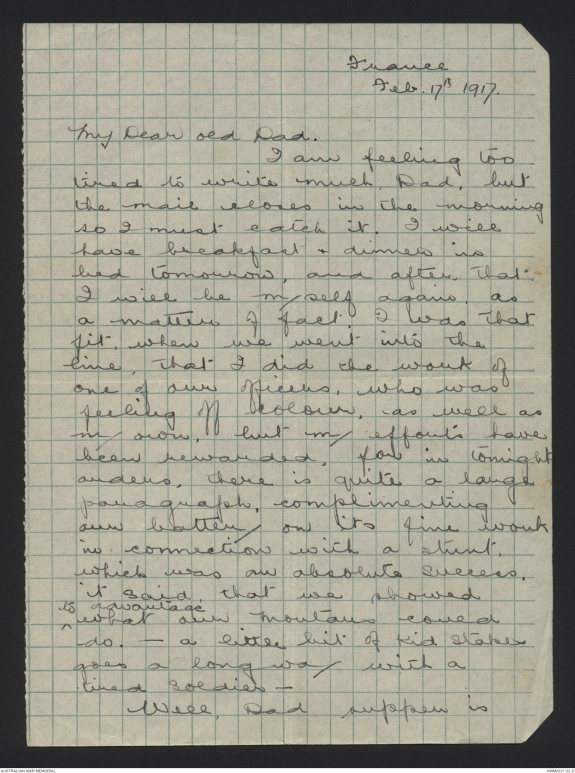 France
Feb. 17th 1917.
My Dear old Dad.
I am feeling too
tired to write much, Dad, but
the mail closes in the morning
so I must catch it. I will
have breakfast + dinner in
bed tomorrow, and after that
I will be myself again, as
a matter of fact, I was that
fit, when we went into the
line, that I did the work of
one of our officers, who was
feeling off colour, as well as
my own, but my efforts have
been rewarded, for in tonight
orders, there is quite a large
paragraph, complimenting
our battery on its fine work
in connection with a stunt,
which was an absolute success,
it said, that we showed
to advantage
what our mortars could
do. — a little bit of kid stakes
goes a long way with a
tired soldier —
Well, Dad supper is
AUSTRALIAN WAR MEMORIAL